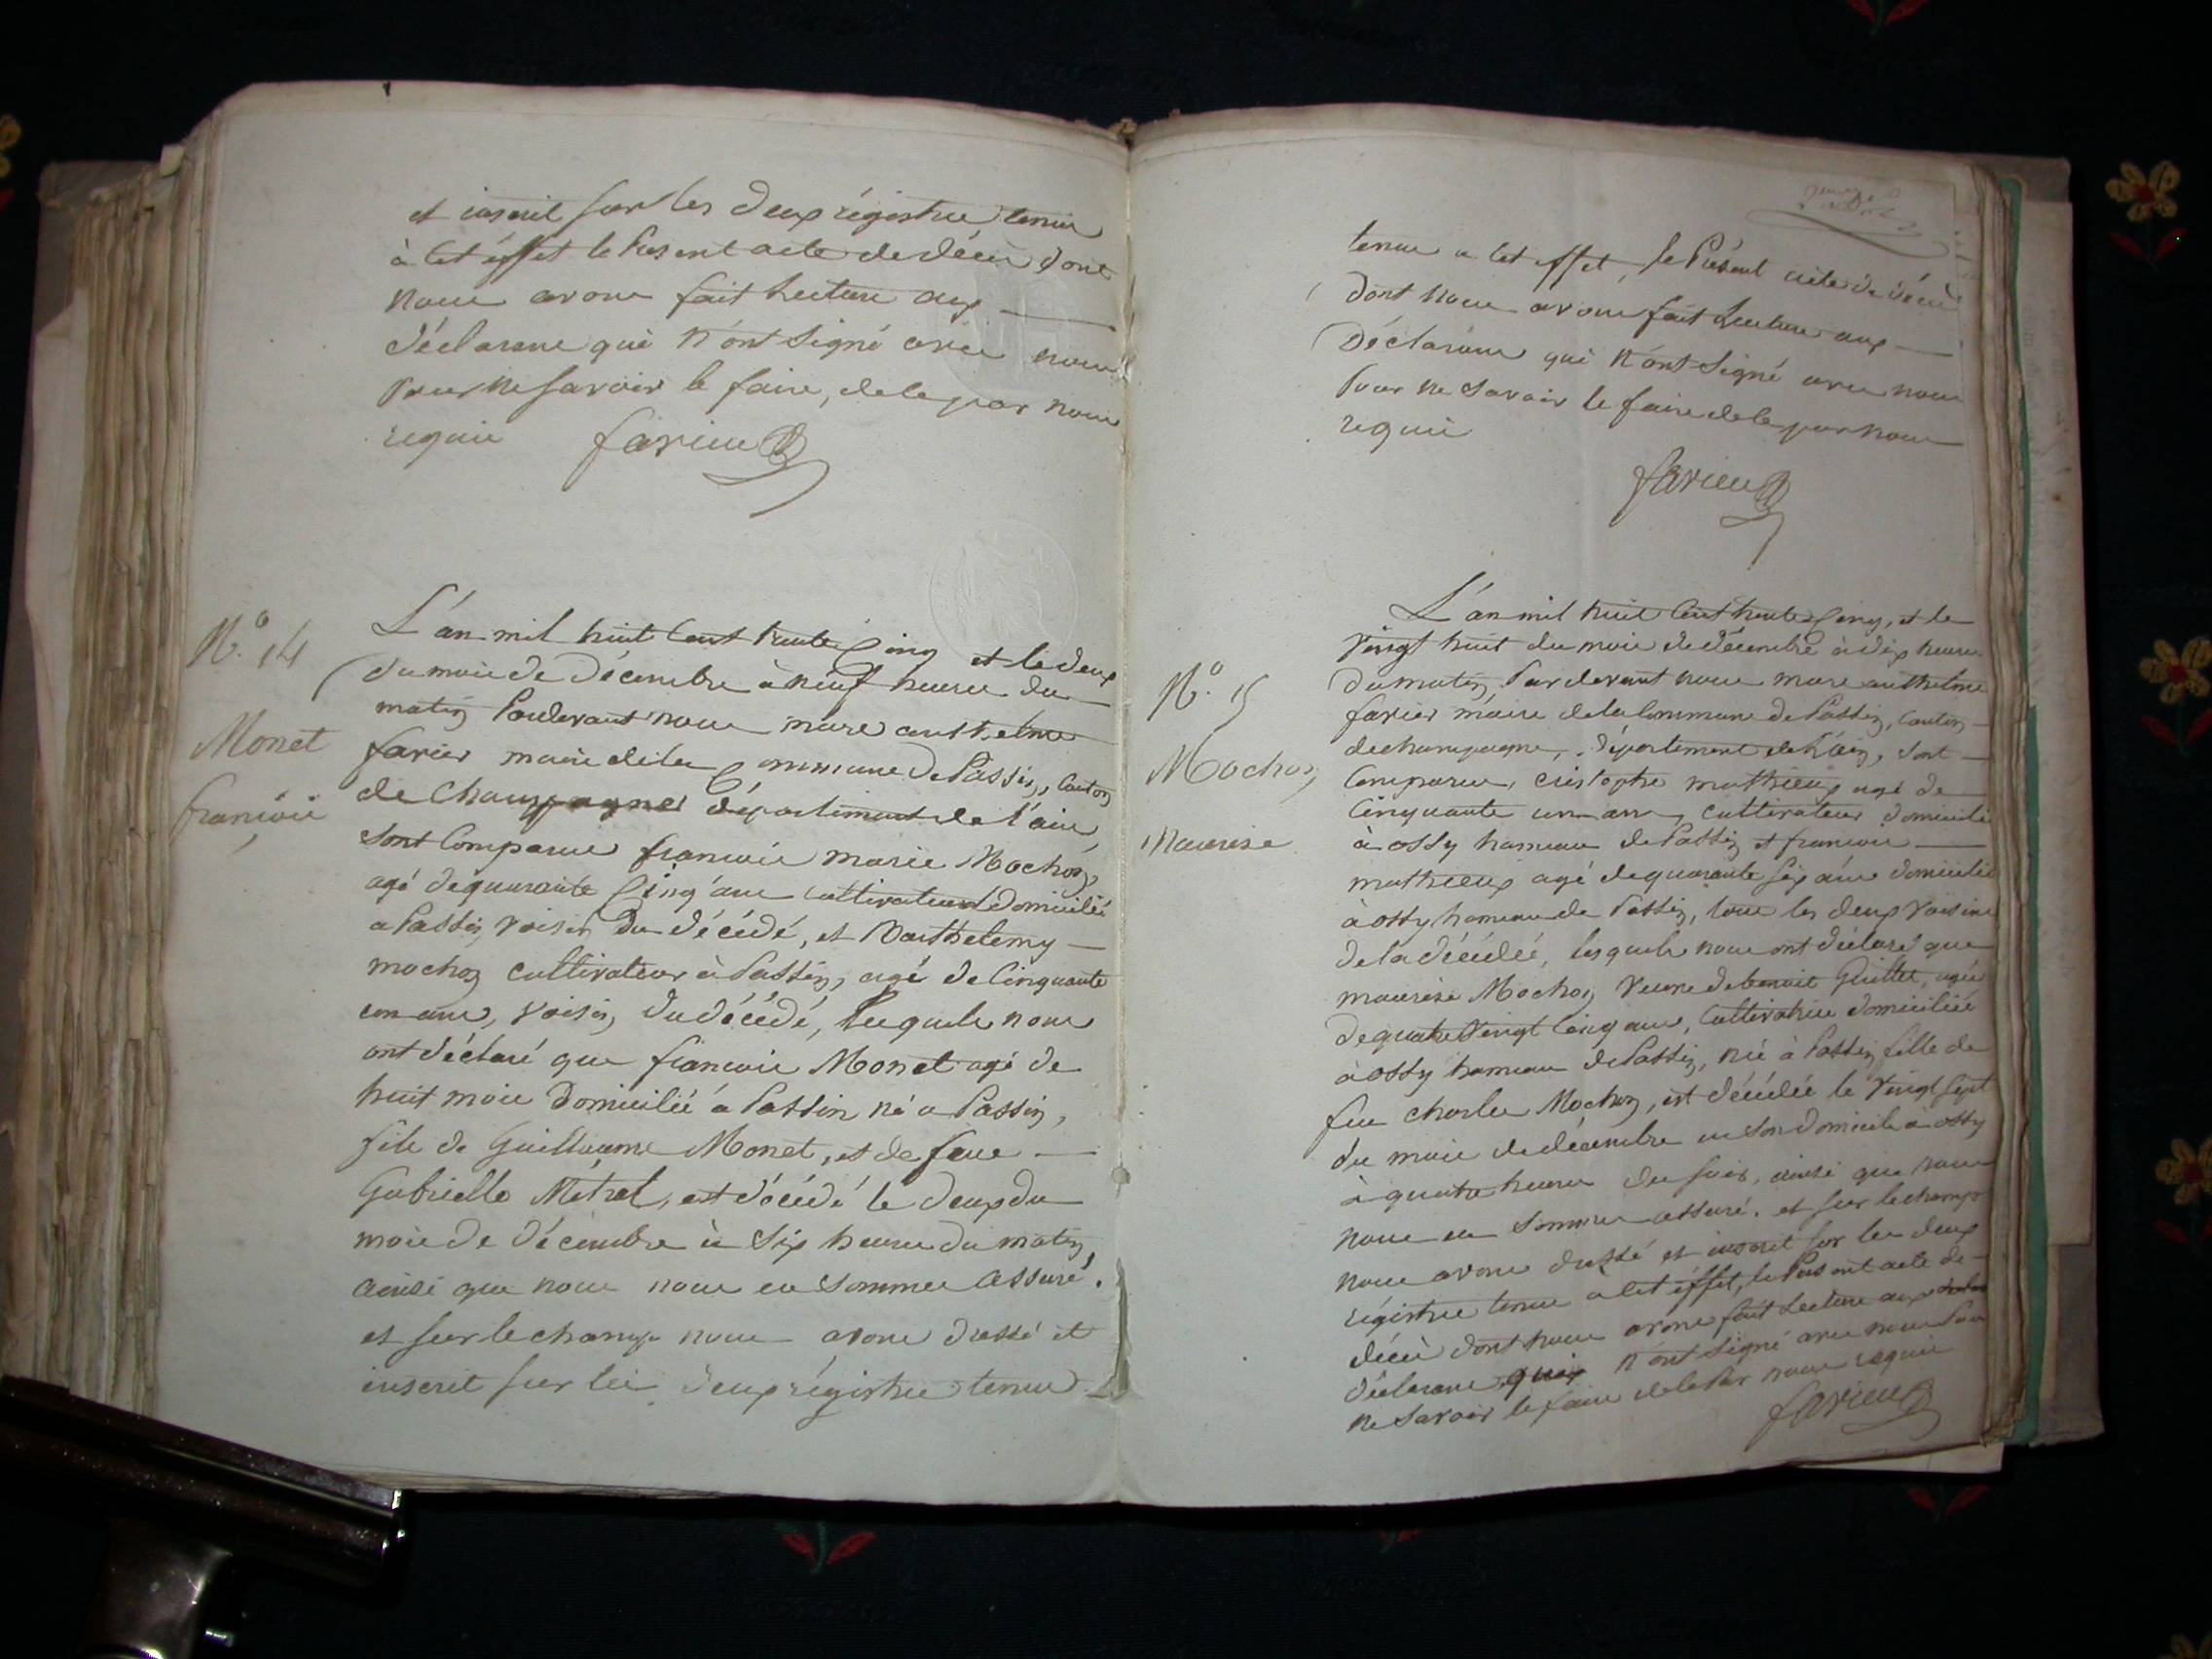 et inscrit sur les deux régistre tenus
à cet éffet le présent acte de décès dont
nous avons fait lecture aux
déclarans qui n'ont signé avec nous
pour ne savoir le faire, de le par nous
requis favier
N.° 14
Monet
françois
L'an mil huit cent trente cinq et le deux
du mois de décembre à neuf heures du
matin Pardevant nous mare anthelme
favier maire de la commune de Passin, canton
de Champagne département de l'ain,
sont comparus françois marie Mochon
agé de quarante cinq ans cultivateur domicilié
a Passin, voisin du décédé, et Barthelemy
mochon cultivateur à Passin, agé de cinquante
un ans, voisin, du décédé, lesquels nous
ont déclaré que françois Monet agé de
huit mois domicilié à Passin né a Passin,
fils de Guillaume Monet, et de feue
Gabrielle Métral, est décédé le deux du
mois de décembre à six heures du matin,
ainsi que nous nous en sommes assuré.
et sur le champ nous avons dressé et
inscrit sur les deux régistre tenus
tenus a cet effet, le Présent acte de décès
dont nous avons fait lecture aux
Déclarans qui n'ont signé avec nous
Pour ne savoir le faire de le par nous
requis
favier
N.° 15
Mochon
Maurise
L'an mil huit cent trente cinq, et le
vingt huit du mois de décembre à dix heures
du matin, Par devant nous mare anthelme
favier maire de la commune de Passin, canton
de champagne, département de l'ain, sont
comparus, cristophe mathieux agé de
cinquante un ans, cultivateur domicilié
à ossy hameau de Passin et françois
mathieux agé de quarante six ans domicilié
à ossy hameau de Passin, tous les deux voisins
de la décédée, lesquels nous ont déclaré que
maurise Mochon, veuve de benoit Guillet, agée
de quatre vingt cinq ans, cultivatrice domiciliée
à ossy hameau de Passin, née à Passin fille de
feu charles Mochon, est décédée le vingt sept
du mois de décembre en son domicile à ossy
à quatre heures du soir, ainsi que nous
nous en sommes assuré. et sur le champ
nous avons dressé et inscrit sur les deux
régistre tenus a cet éffet, le Présent acte de
décès dont nous avons fait lecture aux
déclarans qui n'ont signé avec nous Pour
ne savoir le faire de le Par nous requis
favier